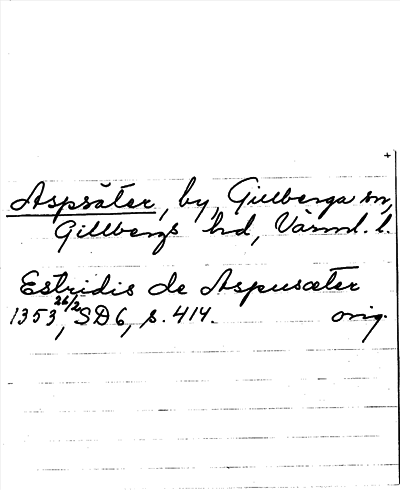 +
Aspsäter, by, Gillberga sn,
Gillbergs hd, Värml. l.
Estridis de Aspusæter
1353 26/2, SD 6, s. 414. orig.